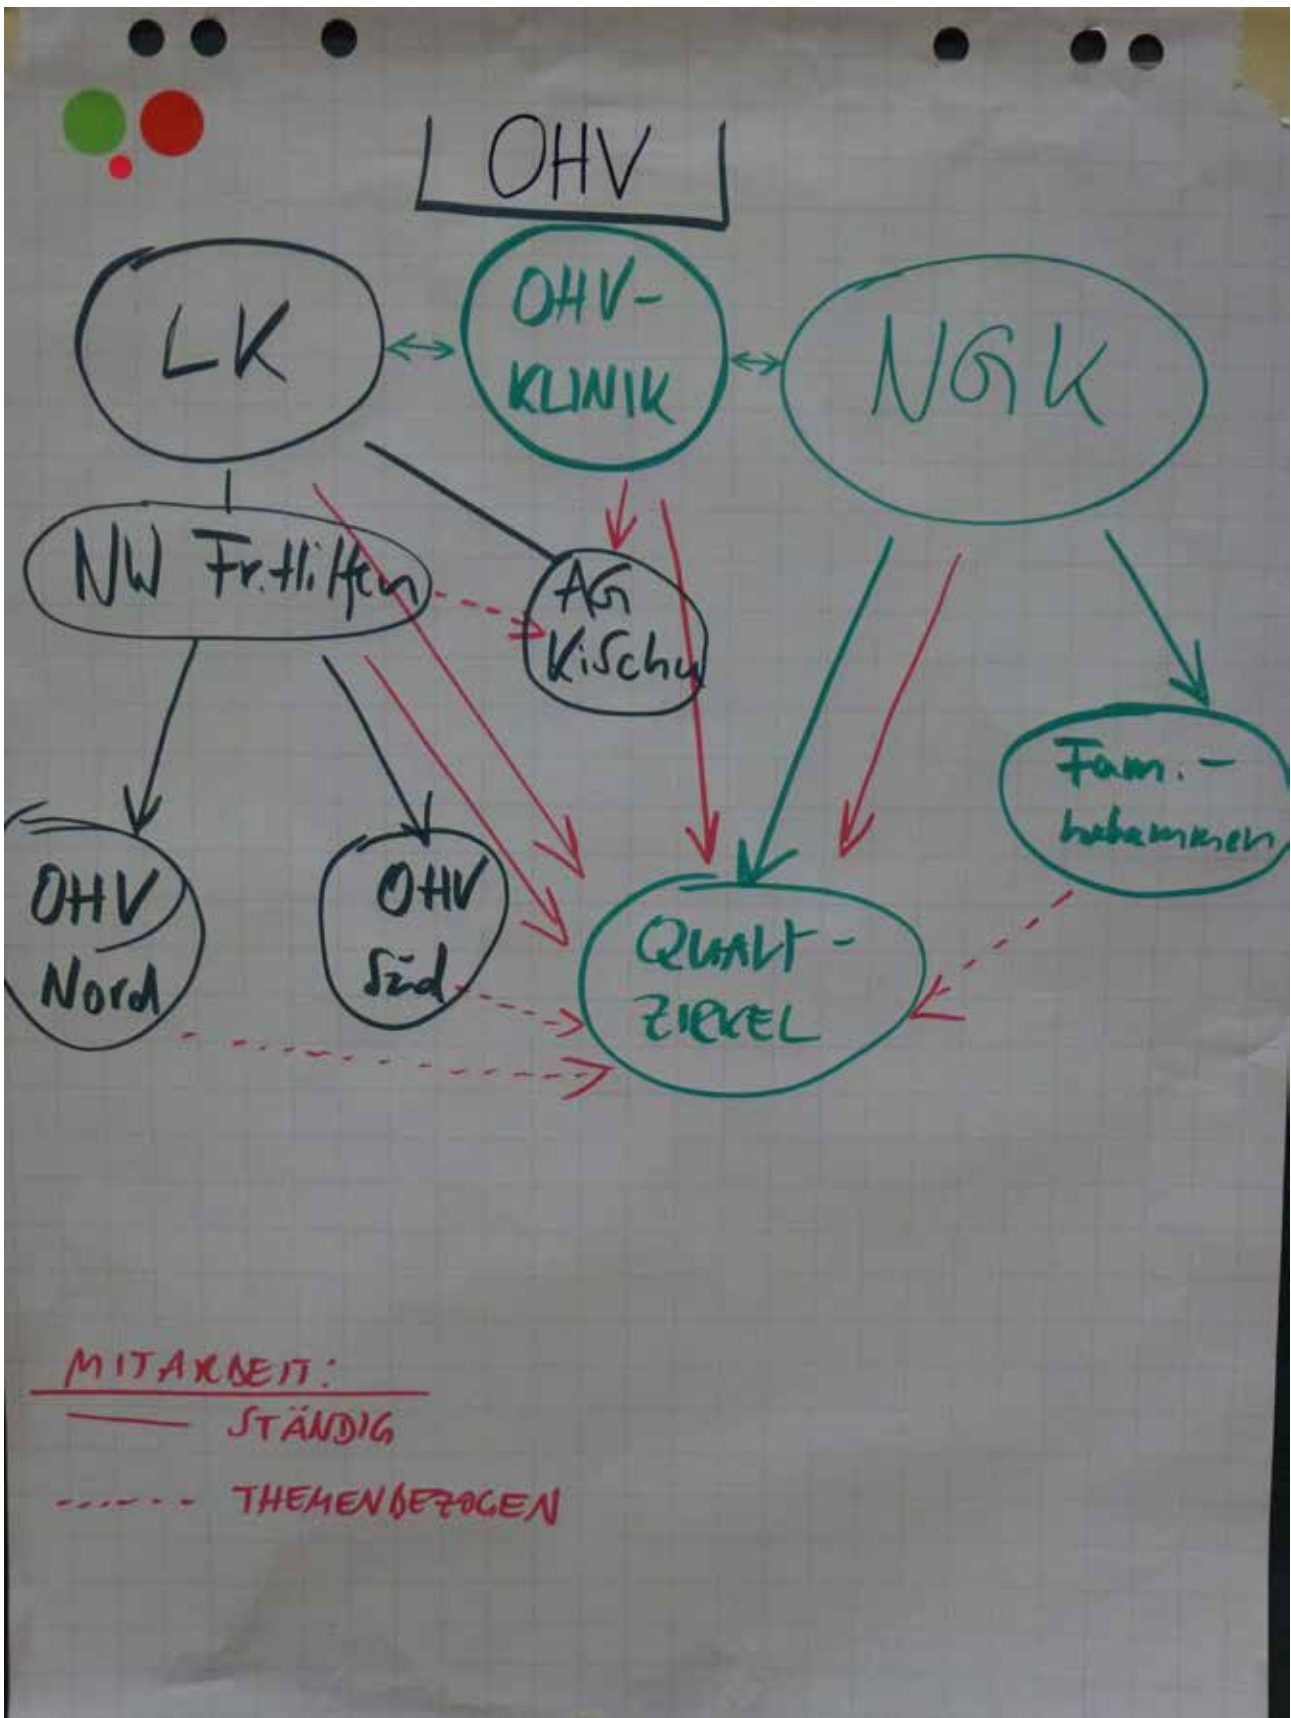 OHV
LK
OHV-
KLINIK
NGK
NW Fr. Hilfen
AG
KiSchu
Fam.-
hebammen
OHV
Nord
OHV
Süd
QUALI-
ZIRKEL
MITARBEIT:
STÄNDIG
THEMENBEZOGEN